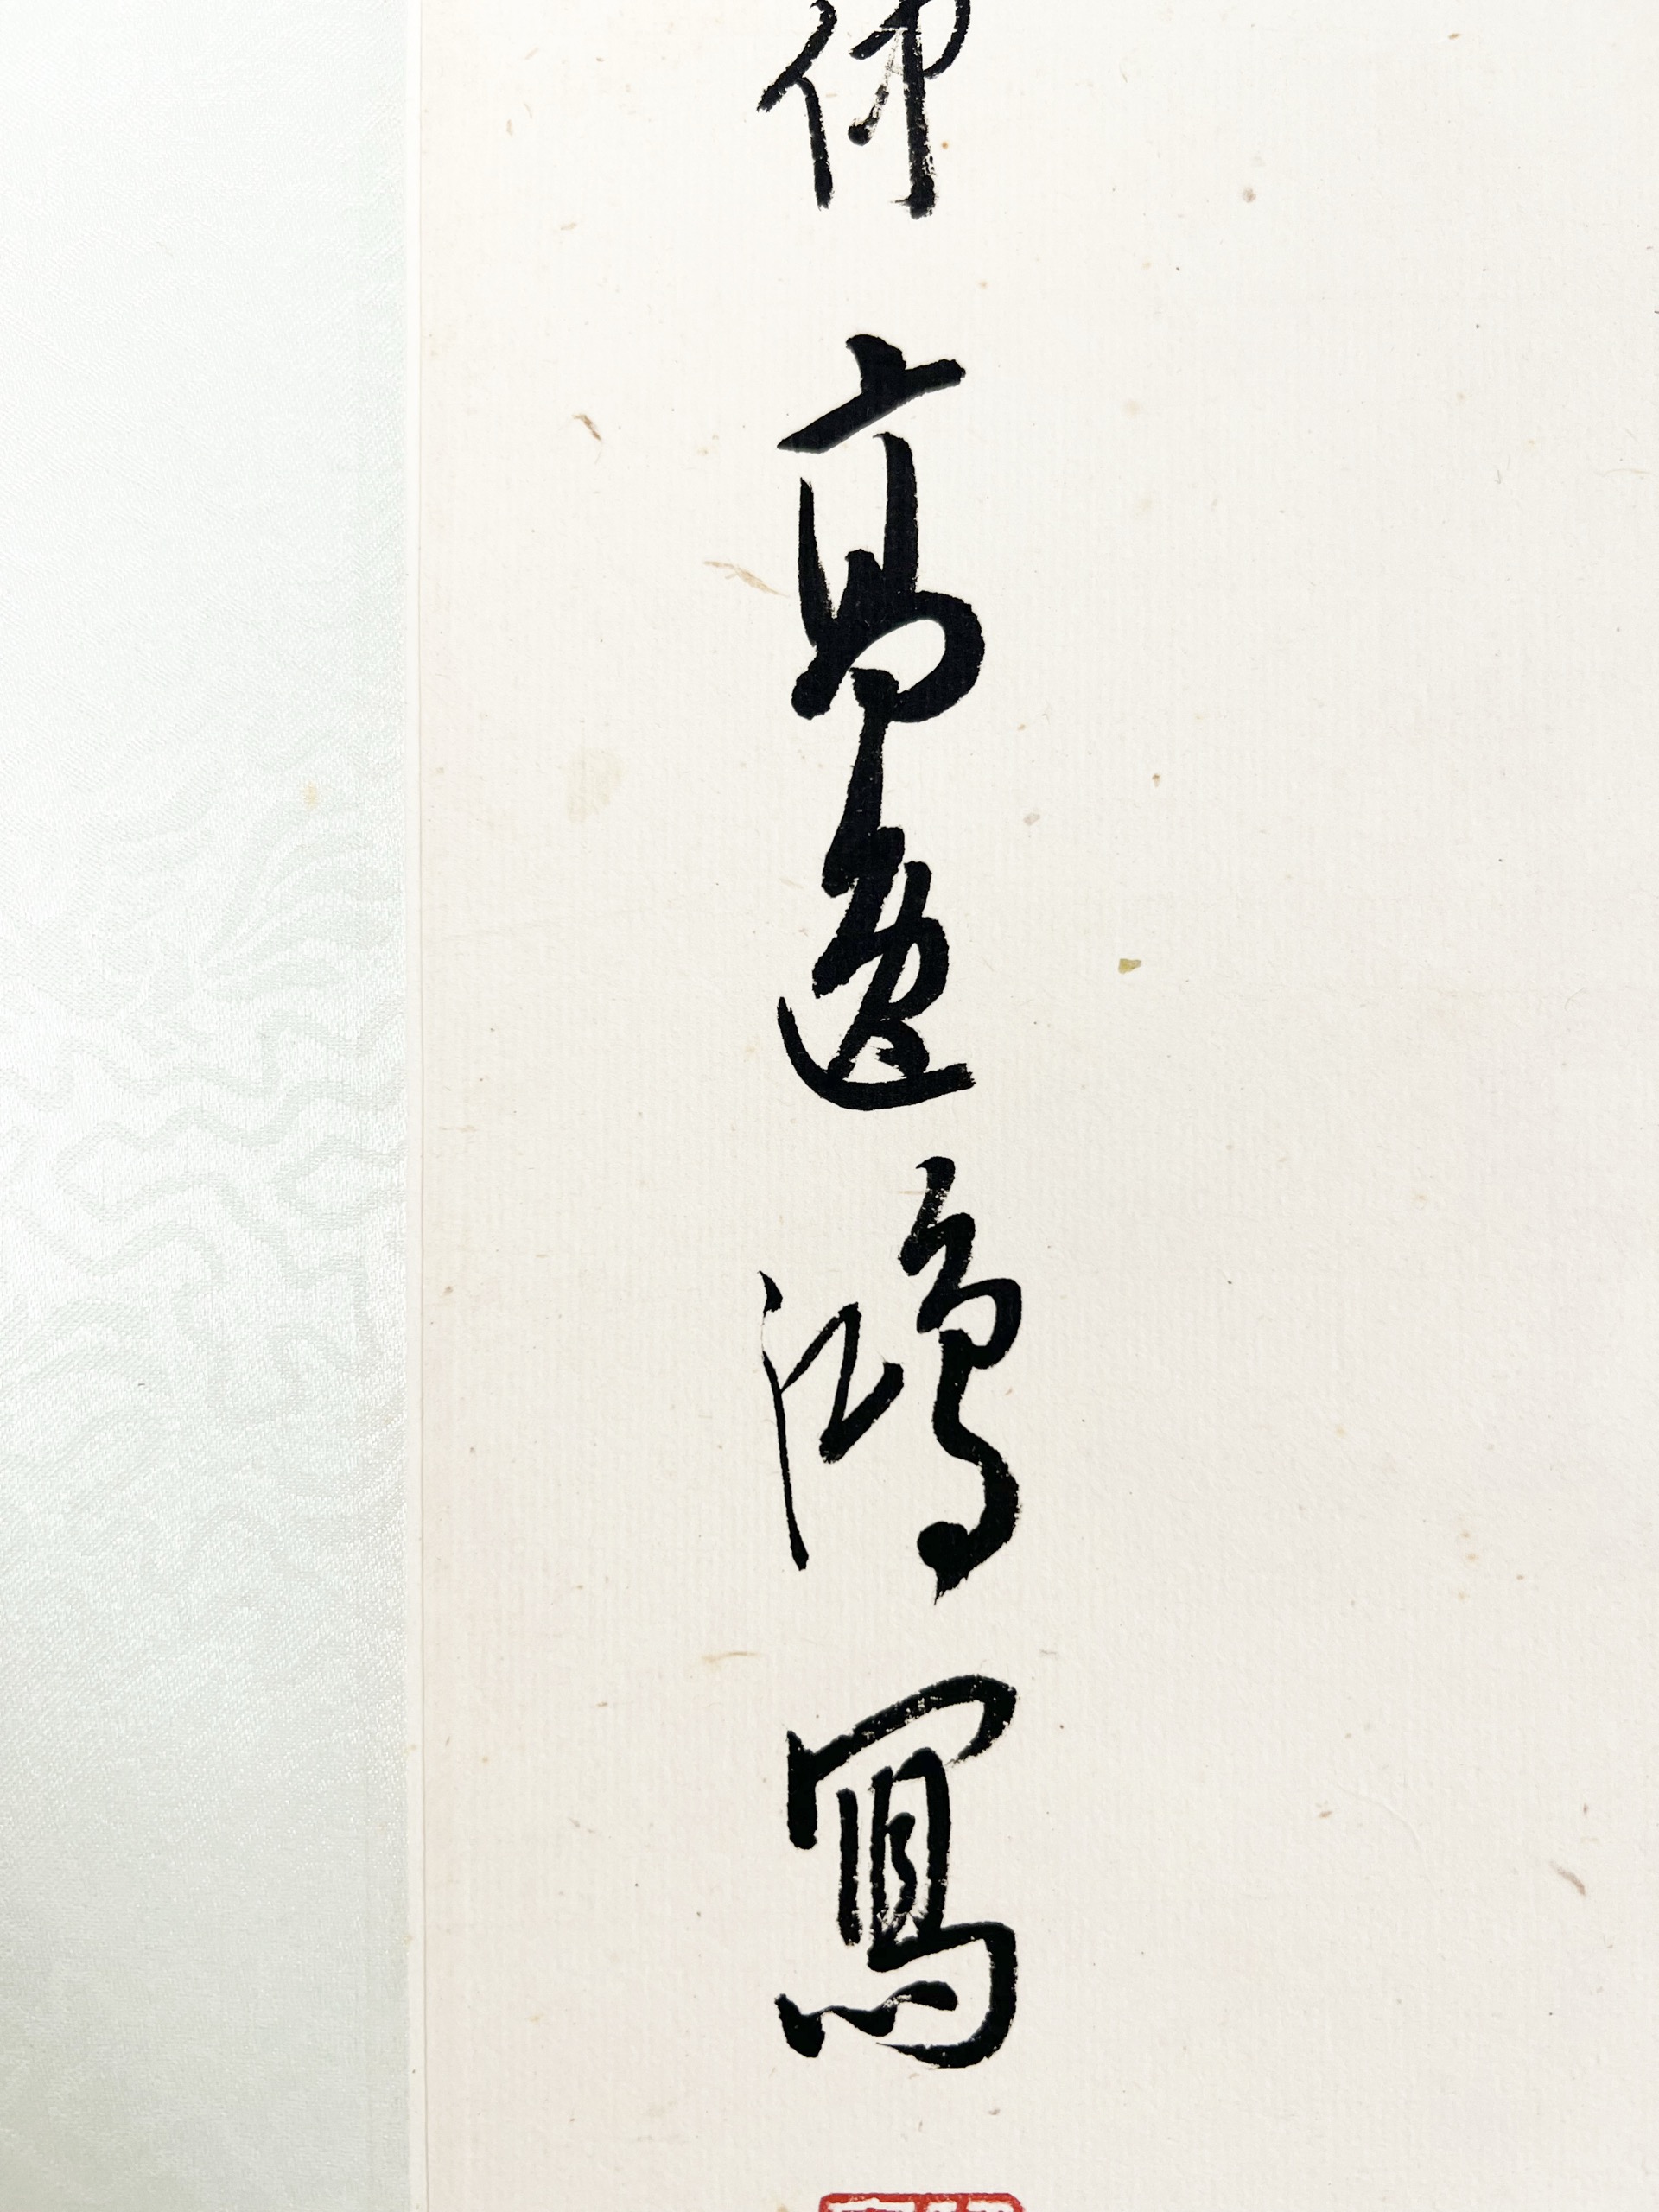 仲 高逸鴻寫